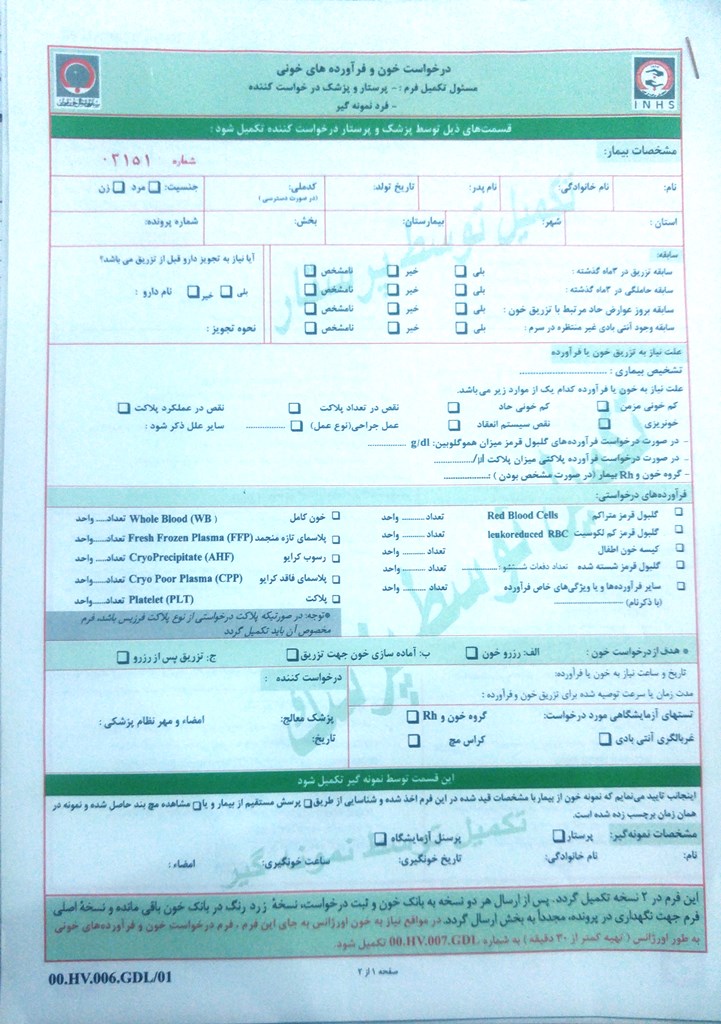 درخواست خون و فرآورده های خونی
مسئول تکمیل فرم : - پرستار و پزشک درخواست کننده
- فرد نمونه گیر
INHS
قسمت‌های ذیل توسط پزشک و پرستار درخواست کننده تکمیل شود :
مشخصات بیمار:
شماره ۰۲۱۵۱
نام: نام خانوادگی: نام پدر: تاریخ تولد: کدملی: جنسیت: مرد زن
(در صورت دسترسی)
استان : شهر: بیمارستان: بخش: شماره پرونده:
تکمیل توسط پرستار
سابقه:
سابقه تزریق در ۳ماه گذشته : بلی خیر نامشخص
سابقه حاملگی در ۳ماه گذشته : بلی خیر نامشخص
سابقه بروز عوارض حاد مرتبط با تزریق خون : بلی خیر نامشخص
سابقه وجود آنتی بادی غیر منتظره در سرم : بلی خیر نامشخص
آیا نیاز به تجویز دارو قبل از تزریق می باشد؟
بلی خیر نام دارو :
نحوه تجویز :
علت نیاز به تزریق خون یا فرآورده
تشخیص بیماری : ................................
علت نیاز به خون یا فرآورده کدام یک از موارد زیر می‌باشد.
کم خونی مزمن کم خونی حاد نقص در تعداد پلاکت نقص در عملکرد پلاکت
خونریزی نقص سیستم انعقاد عمل جراحی(نوع عمل) .............. سایر علل ذکر شود :
- در صورت درخواست فرآورده‌های گلبول قرمز میزان هموگلوبین: g/dl ..............
- در صورت درخواست فرآورده پلاکتی میزان پلاکت µl/..............
- گروه خون و Rh بیمار (در صورت مشخص بودن ) :..............
فرآورده‌های درخواستی:
گلبول قرمز متراکم Red Blood Cells تعداد........... واحد
گلبول قرمز کم لکوسیت leukoreduced RBC تعداد........... واحد
کیسه خون اطفال تعداد........... واحد
گلبول قرمز شسته شده تعداد دفعات شستشو :.............. تعداد........... واحد
سایر فرآورده‌ها و یا ویژگی‌های خاص فرآورده تعداد........... واحد
(با ذکرنام) ..............................
خون کامل Whole Blood (WB ) تعداد.....واحد
پلاسمای تازه منجمد Fresh Frozen Plasma (FFP) تعداد.....واحد
رسوب کرایو CryoPrecipitate (AHF) تعداد.....واحد
پلاسمای فاقد کرایو Cryo Poor Plasma (CPP) تعداد.....واحد
پلاکت Platelet (PLT) تعداد.....واحد
*توجه: در صورتیکه پلاکت درخواستی از نوع پلاکت فرزیس باشد، فرم
مخصوص آن باید تکمیل گردد
تکمیل توسط پزشک
* هدف از درخواست خون : الف: رزرو خون ب: آماده سازی خون جهت تزریق ج: تزریق پس از رزرو
تاریخ و ساعت نیاز به خون یا فرآورده:
مدت زمان یا سرعت توصیه شده برای تزریق خون و فرآورده :
تستهای آزمایشگاهی مورد درخواست: گروه خون و Rh
غربالگری آنتی بادی کراس مچ
درخواست کننده :
پزشک معالج: امضاء و مهر نظام پزشکی :
تاریخ:
این قسمت توسط نمونه گیر تکمیل شود
اینجانب تایید می‌نمایم که نمونه خون از بیمار با مشخصات قید شده در این فرم اخذ شده و شناسایی از طریق پرسش مستقیم از بیمار و یا مشاهده مچ بند حاصل شده و نمونه در
همان زمان برچسب زده شده است.
مشخصات نمونه‌گیر: پرستار پرسنل آزمایشگاه
نام: نام خانوادگی: تاریخ خونگیری: ساعت خونگیری: امضاء :
تکمیل توسط نمونه گیر
این فرم در ۲ نسخه تکمیل گردد. پس از ارسال هر دو نسخه به بانک خون و ثبت درخواست، نسخهٔ زرد رنگ در بانک خون باقی مانده و نسخهٔ اصلی
فرم جهت نگهداری در پرونده، مجدداً به بخش ارسال گردد. در مواقع نیاز به خون اورژانس به جای این فرم ، فرم درخواست خون و فرآورده‌های خونی
به طور اورژانس ( تهیه کمتر از ۳۰ دقیقه ) به شماره 00.HV.007.GDL تکمیل شود.
صفحه ۱ از ۲
00.HV.006.GDL/01